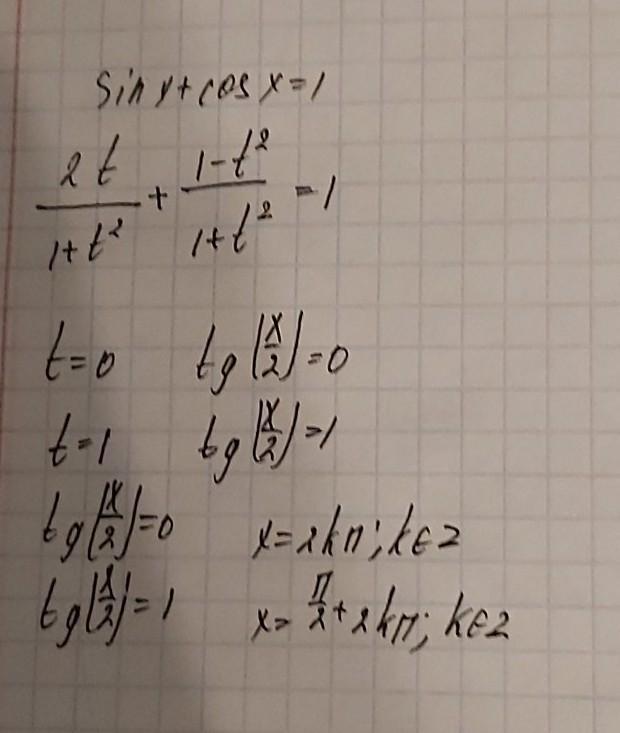 sin x + cos x = 1
2t/(1+t²) + (1-t²)/(1+t²) = 1
t=0 tg(x/2)=0
t=1 tg(x/2)=1
tg(x/2)=0 x=2kπ; k∈Z
tg(x/2)=1 x=π/2+2kπ; k∈Z